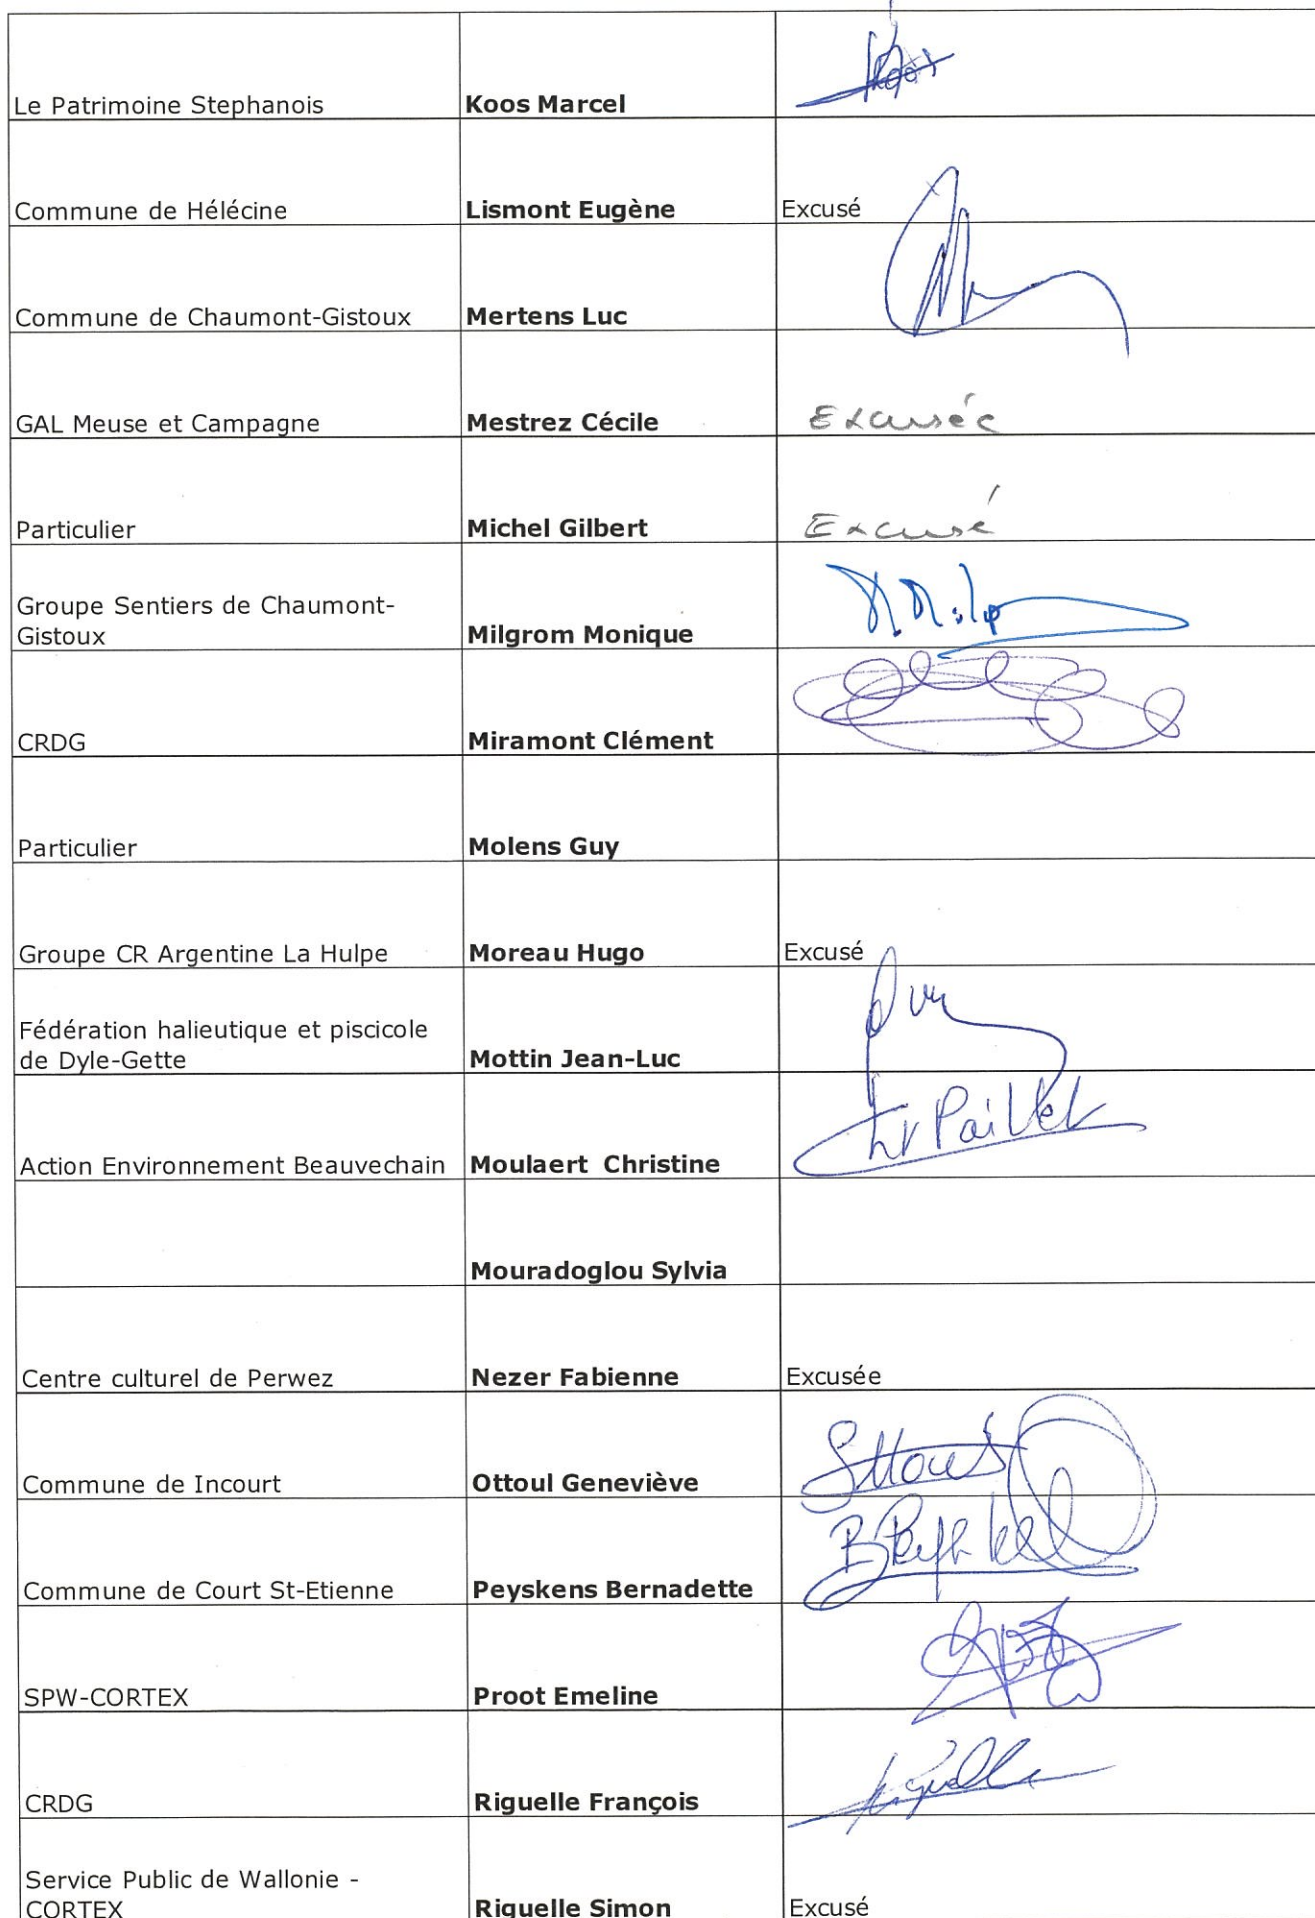 Le Patrimoine Stephanois Koos Marcel
Commune de Hélécine Lismont Eugène Excusé
Commune de Chaumont-Gistoux Mertens Luc
GAL Meuse et Campagne Mestrez Cécile Excusée
Particulier Michel Gilbert Excusé
Groupe Sentiers de Chaumont-
Gistoux Milgrom Monique
CRDG Miramont Clément
Particulier Molens Guy
Groupe CR Argentine La Hulpe Moreau Hugo Excusé
Fédération halieutique et piscicole
de Dyle-Gette Mottin Jean-Luc
Action Environnement Beauvechain Moulaert Christine
Mouradoglou Sylvia
Centre culturel de Perwez Nezer Fabienne Excusée
Commune de Incourt Ottoul Geneviève
Commune de Court St-Etienne Peyskens Bernadette
SPW-CORTEX Proot Emeline
CRDG Riguelle François
Service Public de Wallonie -
CORTEX Riguelle Simon Excusé